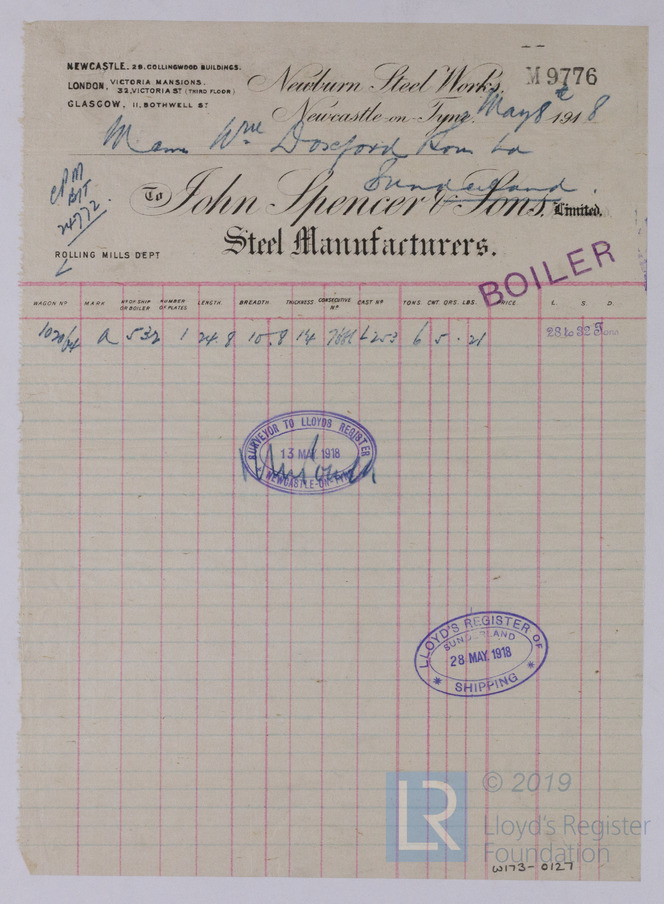 NEWCASTLE. 28. COLLINGWOOD BUILDINGS.
LONDON, VICTORIA MANSIONS.
32, VICTORIA ST (THIRD FLOOR)
GLASGOW, 11, BOTHWELL ST
Newburn Steel Works,
M 9776
Newcastle-on-Tyne May 8th 1918
Messrs Wm Doxford Sons Ld
Sunderland.
24772.
To John Spencer & Sons, Limited.
Steel Manufacturers.
ROLLING MILLS DEPT
BOILER
WAGON No MARK No OF SHIP OR BOILER NUMBER OF PLATES LENGTH. BREADTH. THICKNESS CONSECUTIVE No CAST No TONS. CWT. QRS. LBS. PRICE. L. S. D.
A 532 1 24.8 10.8 14 L253 6 5 . 21 28 to 32 Tons
SURVEYOR TO LLOYDS REGISTER
13 MAY 1918
NEWCASTLE-ON-TYNE
LLOYD'S REGISTER OF
SUNDERLAND
28 MAY. 1918
* SHIPPING *
LR
© 2019
Lloyd's Register
Foundation
W173-0127